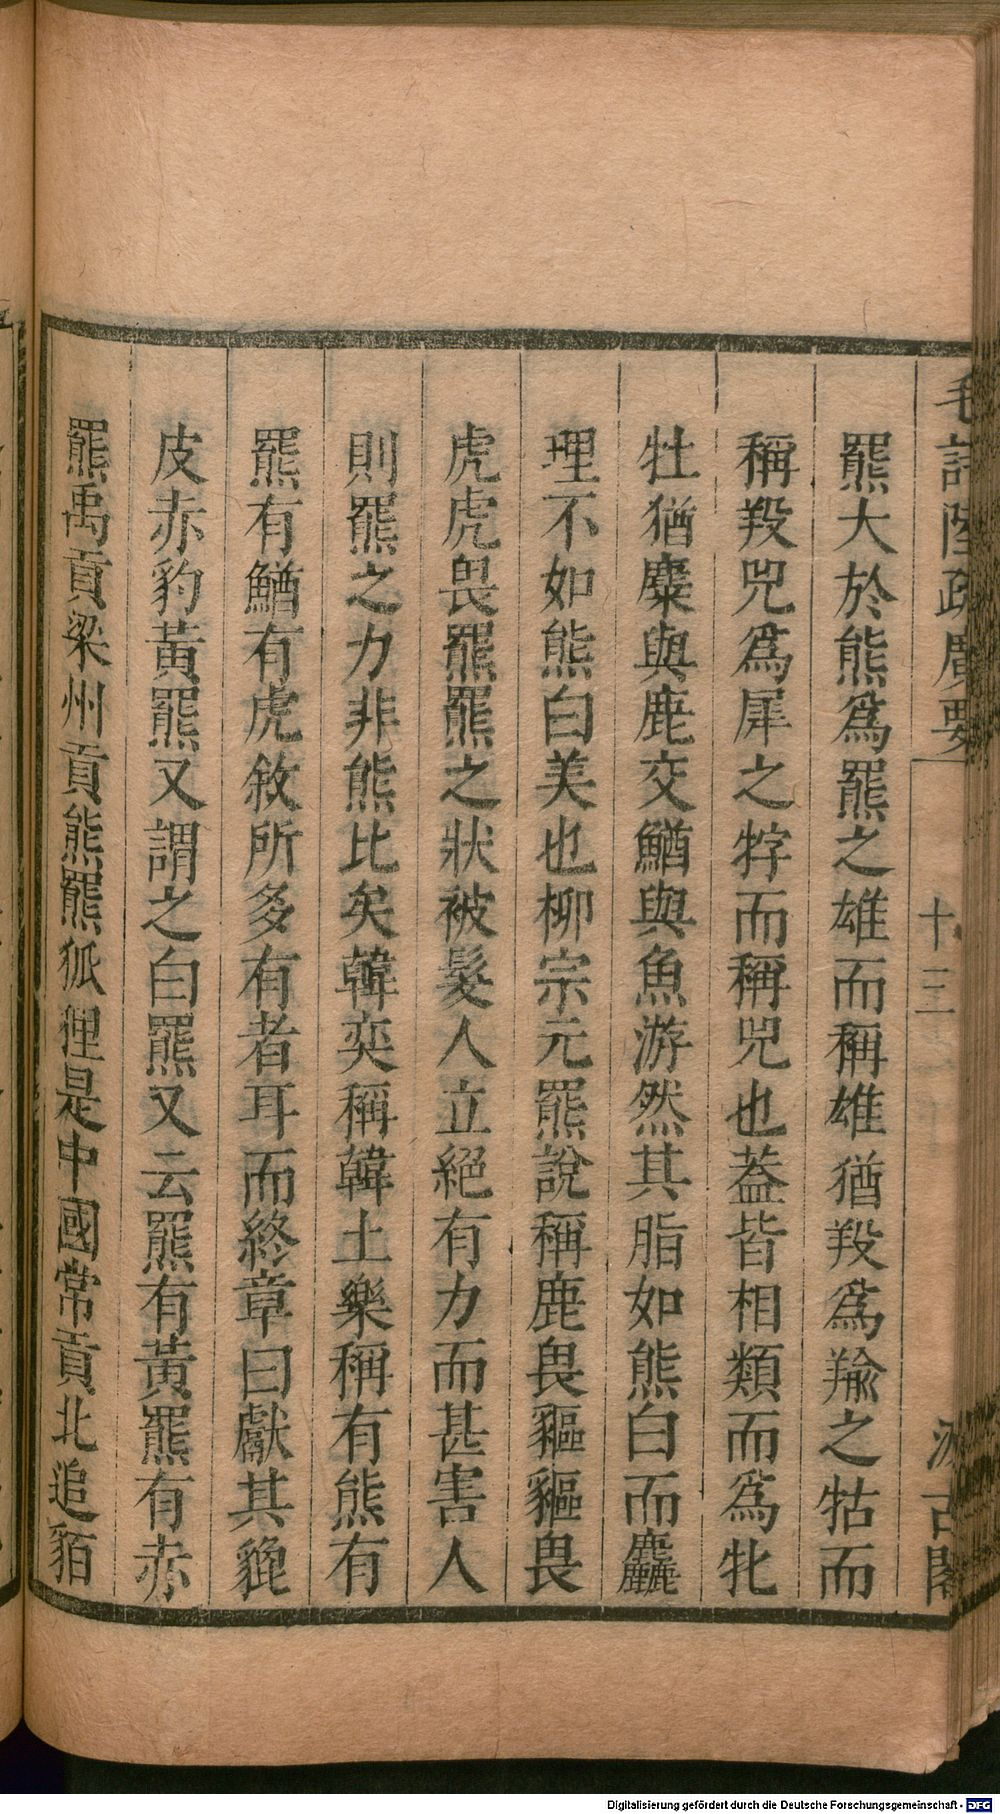 毛詩陸疏廣要 十三 汲古閣
羆大於熊爲羆之雄而稱雄猶羖爲羭之牯而
稱羖兕爲犀之牸而稱兕也蓋皆相類而爲牝
牡猶麋與鹿交鰌與魚游然其脂如熊白而麤
理不如熊白美也柳宗元羆說稱鹿畏貙貙畏
虎虎畏羆羆之狀被髮人立絕有力而甚害人
則羆之力非熊比矣韓奕稱韓土樂稱有熊有
羆有鰌有虎敘所多有者耳而終章曰獻其貔
皮赤豹黃羆又謂之白羆又云羆有黃羆有赤
羆禹貢梁州貢熊羆狐狸是中國常貢北追貊
Digitalisierung gefördert durch die Deutsche Forschungsgemeinschaft - DFG